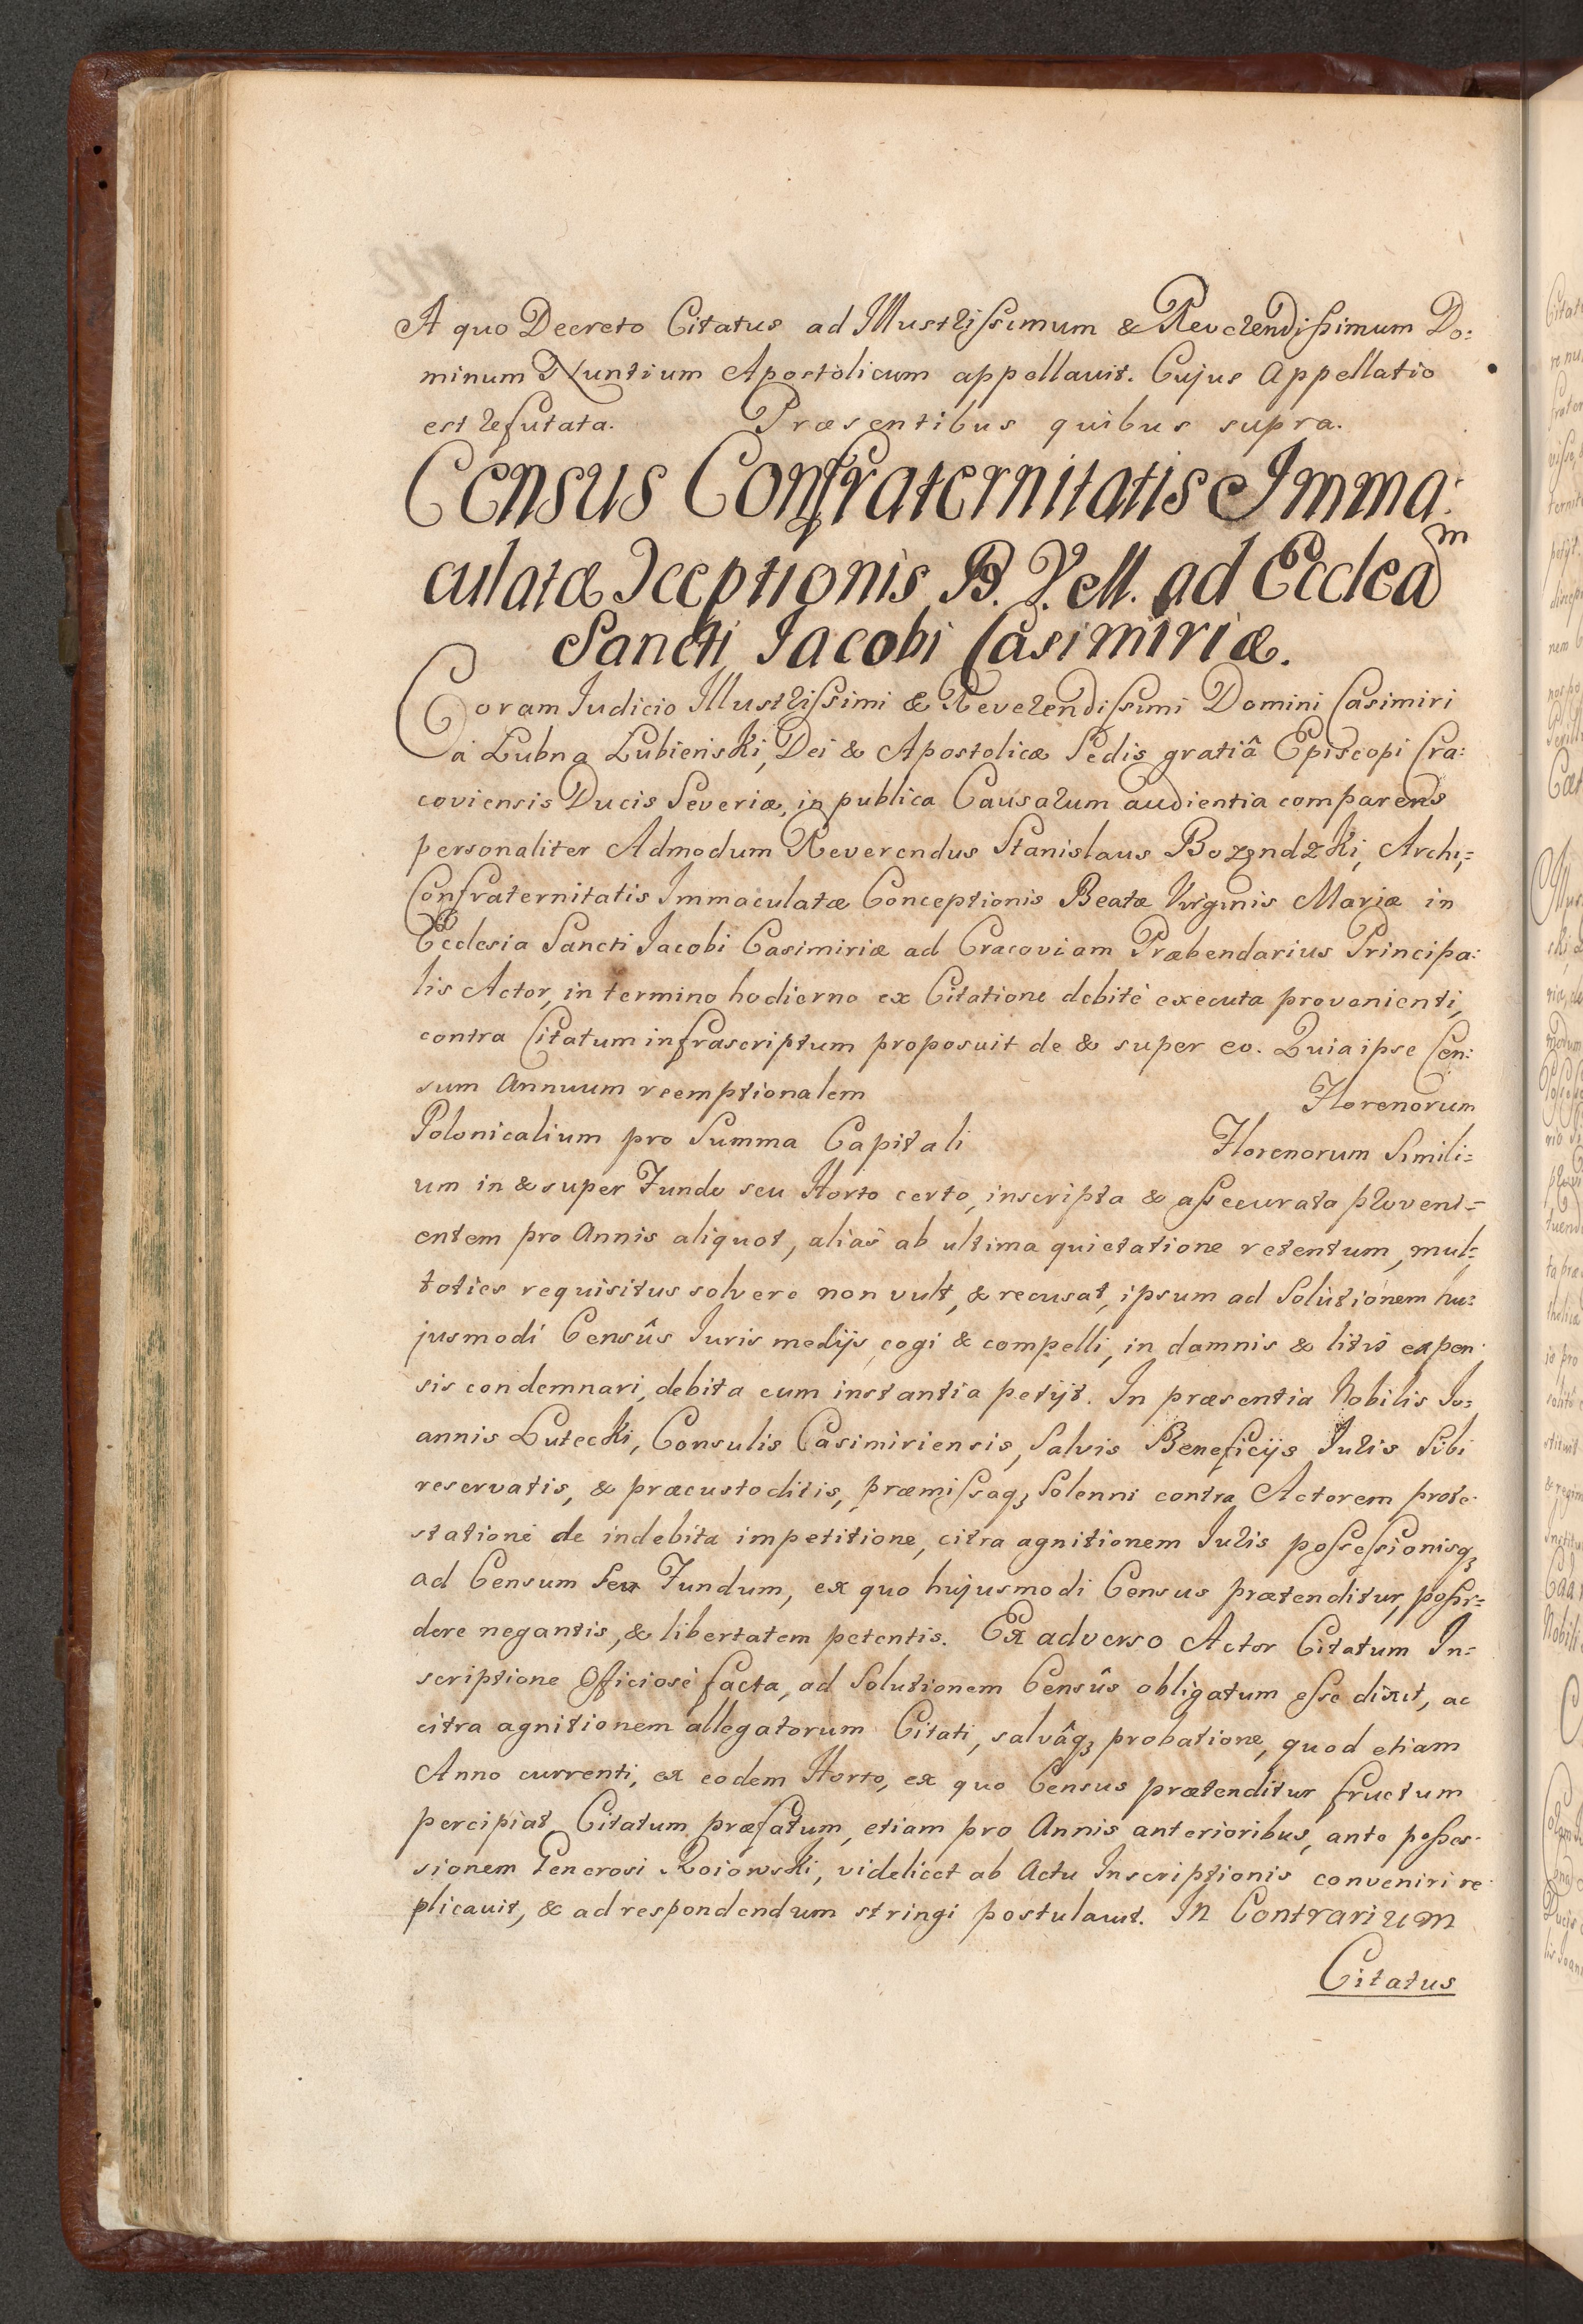 A quo Decreto Citatus ad Illustrissimum & Reverendissimum Do:
minum Nuntium Apostolicum appellavit. Cujus Appellatio
est refutata. Præsentibus quibus supra.
Census Confraternitatis Imma:
culatæ Ɔceptionis B. V. M. ad Eccleam
Sancti Iacobi Casimiriæ.
Coram Iudicio Illustrissimi & Reverendissimi Domini Casimiri
à Lubna Lubieński, Dei & Apostolicæ Sedis gratiâ Episcopi Cra:
coviensis Ducis Severiæ, in publica Causarum audientia comparens
personaliter Admodum Reverendus Stanislaus Archi,=
Confraternitatis Immaculatæ Conceptionis Beatæ Virginis Mariæ in
Ecclesia Sancti Iacobi Casimiriæ ad Cracoviam Præbendarius Principa:
lis Actor, in termino hodierno ex Citatione debitè executa provenienti,
contra Citatum infrascriptum proposuit de & super eo. Quia ipse Cen:
sum Annuum reemptionalem Florenorum
Polonicalium pro Summa Capitali Florenorum Simili=
um in & super Fundo seu Horto certo, inscripta & assecurata proveni=
entem pro Annis aliquot, aliàs ab ultima quietatione retentum, mul=
toties requisitus solvere non vult, & recusat, ipsum ad Solutionem hu=
jusmodi Censûs Iuris medijs cogi & compelli, in damnis & litis expen:
sis condemnari, debita cum instantia petijt. In præsentia Nobilis Io=
annis Lutecki, Consulis Casimiriensis, Salvis Beneficijs Iuris Sibi
reservatis, & præcustoditis, præmissaq3 Solenni contra Actorem prote:
statione de indebita impetitione, citra agnitionem Iuris possessionisq3
ad Censum Seu Fundum, ex quo hujusmodi Census prætenditur, possi=
dere negantis, & libertatem petentis. Ex adverso Actor Citatum In=
scriptione Officiosè facta, ad Solutionem Censûs obligatum esse dixit, ac
citra agnitionem allegatorum Citati, salvâq3 probatione, quod etiam
Anno currenti, ex eodem Horto, ex quo Census prætenditur fructum
percipiat, Citatum præfatum, etiam pro Annis anterioribus, ante posses:
sionem Generosi Roiowski, videlicet ab Actu Inscriptionis conveniri re:
plicavit, & ad respondendum stringi postulavit. In Contrarium
Citatus